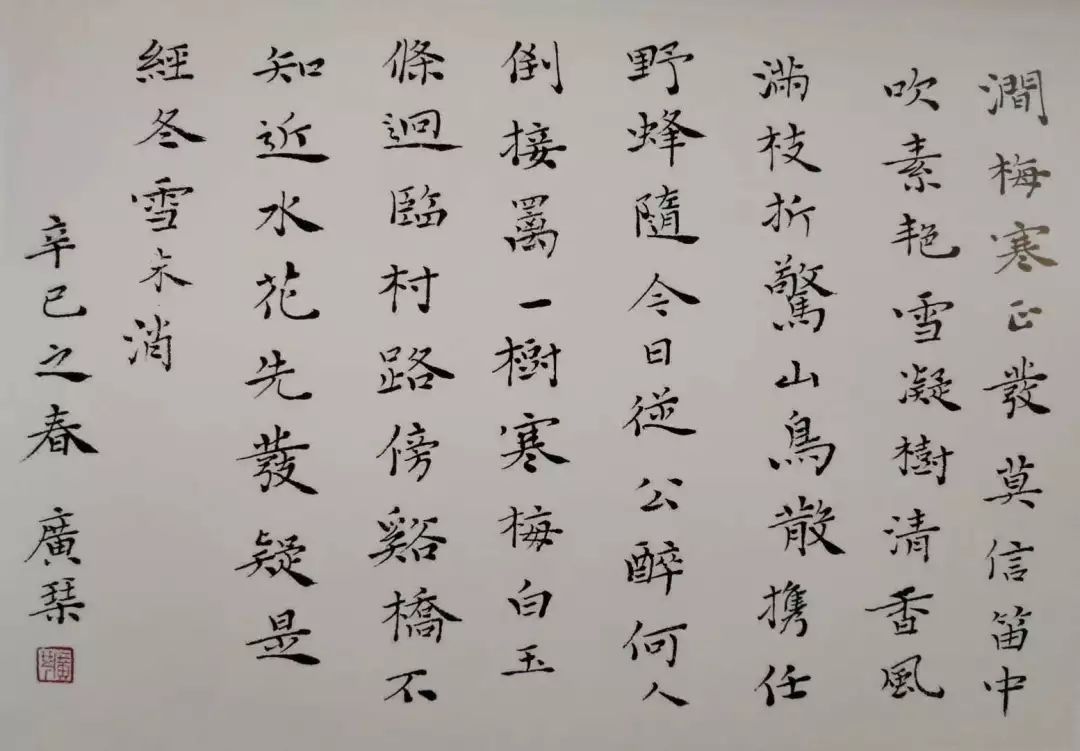 澗梅寒正發莫信笛中
吹素艳雪凝樹清香風
滿枝折驚山鳥散携任
野蜂隨今日從公醉何人
倒接䍦一樹寒梅白玉
條迥臨村路傍谿橋不
知近水花先發疑是
經冬雪未消
辛巳之春 廣琹